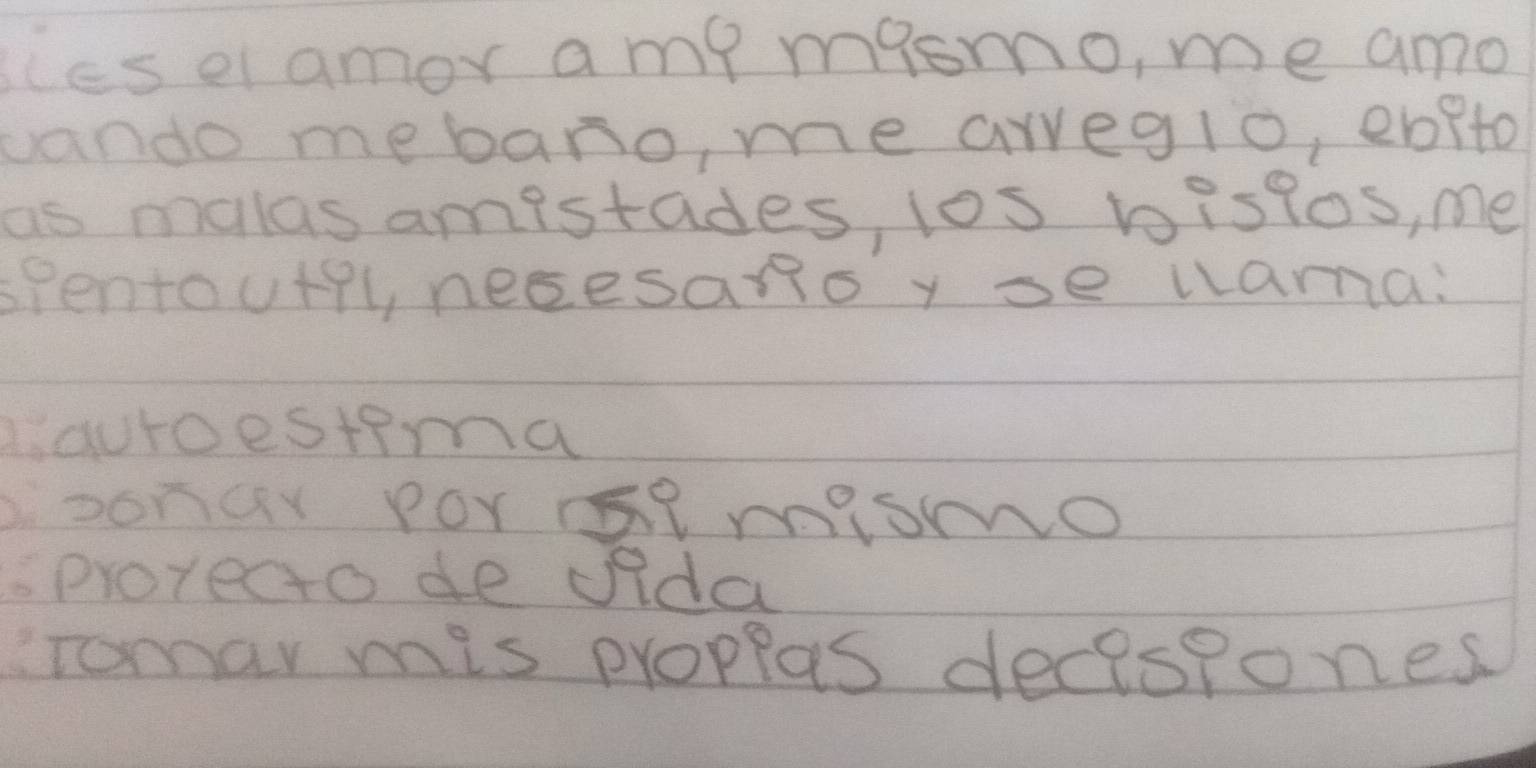 es el amor a mi mismo, me amo
uando me baño, me arreglo, ebito
as malas amistades, los bisios, me
siento util, necesario y se llama:
a: autoestima
soñar por si mismo
proyecto de vida
Tomar mis propias decisiones